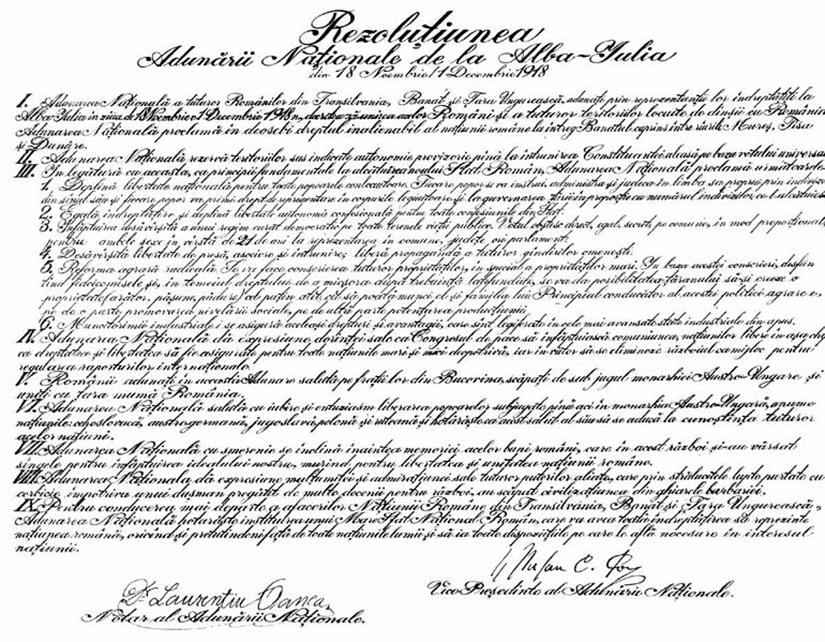 Rezoluțiunea
Adunării Naționale de la Alba-Iulia
din 18 Noembrie/1 Decembrie 1918
I. Adunarea Națională a tuturor Românilor din Transilvania, Banat și Țara Ungurească, adunați prin reprezentanții lor îndreptățiți la
Alba-Iulia în ziua de 18 Noembrie/1 Decembrie 1918, decretează unirea acelor Români și a tuturor teritoriilor locuite de dînșii cu România.
Adunarea Națională proclamă în deosebi dreptul inalienabil al națiunii române la întreg Banatul cuprins între rîurile Mureș, Tisa
și Dunăre.
II. Adunarea Națională rezervă teritoriilor sus indicate autonomie provizorie pînă la întrunirea Constituantei aleasă pe baza votului universal.
III. În legătură cu aceasta, ca principii fundamentale la alcătuirea noului Stat Român, Adunarea Națională proclamă următoarele:
1. Deplină libertate națională pentru toate popoarele conlocuitoare. Fiecare popor se va instrui, administra și judeca în limba sa proprie prin indivizi
din sînul său și fiecare popor va primi drept de reprezentare în corpurile legiuitoare și la guvernarea țării în proporție cu numărul indivizilor ce-l alcătuiesc.
2. Egală îndreptățire și deplină libertate autonomă confesională pentru toate confesiunile din Stat.
3. Înfăptuirea desăvîrșită a unui regim curat democratic pe toate terenele vieții publice. Votul obștesc, direct, egal, secret, pe comune, în mod proporțional,
pentru ambele sexe în vîrstă de 21 de ani la reprezentarea în comune, județe ori parlament.
4. Desăvîrșită libertate de presă, asociere și întrunire; liberă propagandă a tuturor gîndirilor omenești.
5. Reforma agrară radicală. Se va face conscrierea tuturor proprietăților, în special a proprietăților mari. În baza acestei conscrieri, desființînd
fideicomisele și, în temeiul dreptului de a micșora după trebuință latifundiile, se va da posibilitatea țăranului să-și creeze o
proprietate (arător, pășune, pădure) cel puțin atît, cît să poată munci el și familia lui. Principiul conducător al acestei politici agrare e,
pe de o parte promovarea nivelării sociale, pe de altă parte potențarea producțiunii.
6. Muncitorimii industriale i se asigură aceleași drepturi și avantagii, care sînt legiferate în cele mai avansate state industriale din apus.
IV. Adunarea Națională dă expresiune dorinței sale ca Congresul de pace să înfăptuiască comuniunea națiunilor libere în așa chip
ca dreptatea și libertatea să fie asigurate pentru toate națiunile mari și mici deopotrivă, iar în viitor să se elimineze războiul ca mijloc pentru
regularea raporturilor internaționale.
V. Românii adunați în această Adunare salută pe frații lor din Bucovina, scăpați de sub jugul monarhiei Austro-Ungare și
uniți cu țara mumă România.
VI. Adunarea Națională salută cu iubire și entuziasm liberarea popoarelor subjugate pînă aci în monarhia Austro-Ungară, anume
națiunile: cehoslovacă, austrogermană, jugoslavă, polonă și ruteană și hotărăște ca acest salut al său să se aducă la cunoștința tuturor
acelor națiuni.
VII. Adunarea Națională cu smerenie se închină înaintea memoriei acelor bupi români, care în acest război și-au vărsat
sîngele pentru înfăptuirea idealului nostru, murind pentru libertatea și unitatea națiunii române.
VIII. Adunarea Națională dă expresiune mulțumitei și admirațiunei sale tuturor puterilor aliate, care prin strălucitele lupte purtate cu
cerbicie împotriva unui dușman pregătit de multe decenii pentru război, au scăpat civilizațiunea din ghiarele barbariei.
IX. Pentru conducerea mai departe a afacerilor Națiunii Române din Transilvania, Banat și Țara Ungurească,
Adunarea Națională hotărăște instituirea unui Mare Sfat Național Român, care va avea toată îndreptățirea să reprezinte
națiunea română, oricînd și pretutindeni față de toate națiunile lumii și să ia toate dispozițiile pe care le află necesare în interesul
națiunii.
Dr. Laurențiu Oanea
Notar al Adunării Naționale.
Vice Președinte al Adunării Naționale.